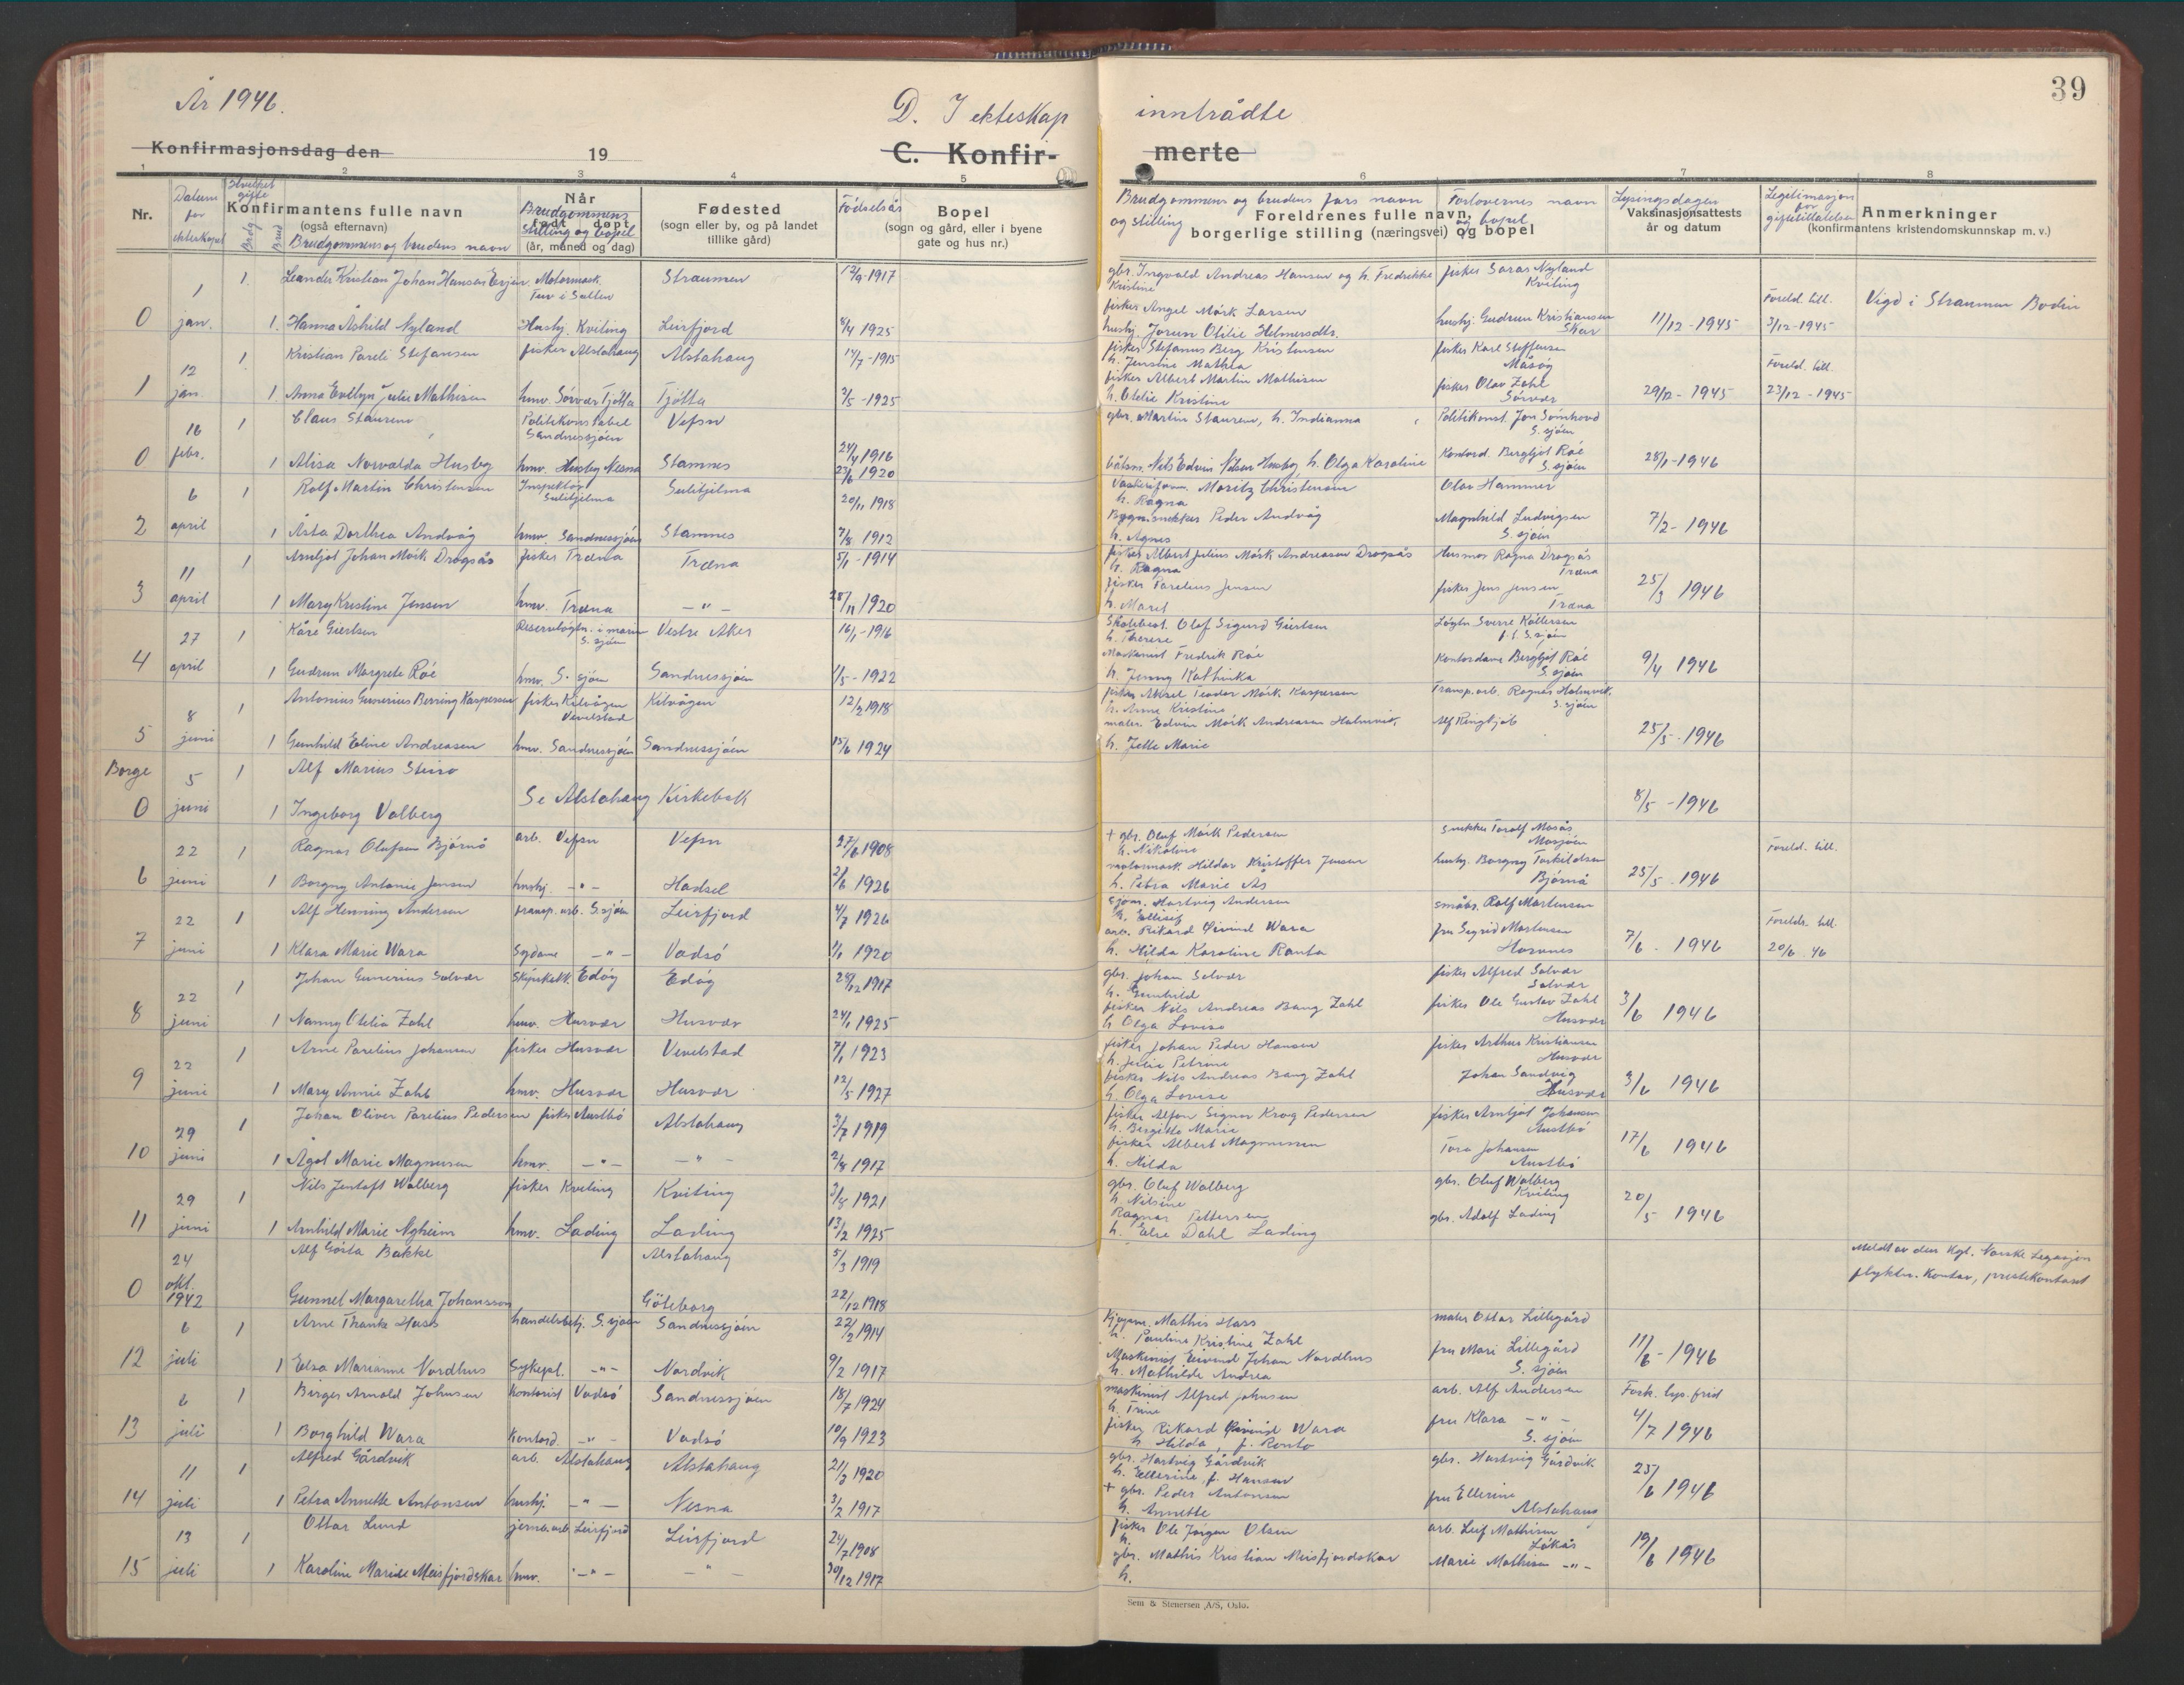 39
År 1946.
D. I ekteskap inntrådte
Konfirmasjonsdag den 19
C. Konfirmerte
1 2 3 4 5 6 7 8
Nr.
Datum for ekteskapet
gifte
Brdg Brud
Konfirmantens fulle navn
(også efternavn)
Brudgommens og brudens navn
Når
Brudgommens
født døpt
stilling og bopel
(år, måned og dag)
Fødested
(sogn eller by, og på landet
tillike gård)
Fødselsår
Bopel
(sogn og gård, eller i byene
gate og hus nr.)
Brudgommens og brudens fars navn og stilling
Foreldrenes fulle navn,
borgerlige stilling (næringsvei) og bopel
Forlovernes navn og bopel
Lysingsdagen
Vaksinasjonsattests
år og datum
Legitimasjon for giftetillatelse
Anmerkninger
(konfirmantens kristendomskunnskap m. v.)
1 1. Leander Kristian Johan Hansen Motormask. Straumen 12/9-1917 gbr. Ingvald Andreas Hansen og h. Fredrikke Kristine fisker Saras Nyland Kviting
0 jan. 1. Hanna Åshild Nyland Hushj. Kviting Leirfjord 4/4 1925 fisker Angel Mörk Larsen hushj. Jorun Otilie Helmersdtr. hushj. Gudrun Kristiansen Skar 11/12-1945 Foreld. till. 3/12-1945 Vigd i Straumen Bodin
12 1. Kristian Pareli Stefansen fisker Alstahaug Alstahaug 14/7-1915 fisker Stefanus Berg Kristensen h. Jensine Mathea fisker Karl Steffensen Måsøy
1 jan 1 Anna Evelyn Julie Mathisen hmv. Sørvær Tjötta Tjötta 2/5-1925 fisker Albert Martin Mathisen h. Otelie Kristine fisker Olav Zahl Sørvær 29/12-1945 Foreld. till. 23/12-1945
16 1 Claus Stauren Politikons. Sandnessjöen Vefsn 24/4 1916 gbr. Martin Stauren, h. Indianna Politikonst. Jon Sömhovd S. sjöen
0 febr. 1 Alisa Norvalda Husby hmv. Husby Nesna Stamnes 23/6 1920 båtsm. Nils Edvin Nilsen Husby, h. Olga Karoline Kontord. Bergljot Röe S. sjöen 28/1-1946
6 1 Rolf Martin Christensen Inspektör Sulitjelma Sulitjelma 20/11 1918 Moritz Christensen h. Ragna Olav Hammer
2 april 1 Åsta Dorthea Andvåg hmv. Sandnessjöen Stamnes 7/8 1912 Bygn.snekker Peder Andvåg h. Agnes Magnhild Ludvigsen S. sjöen 7/2-1946
11 1 Arnljot Johan Mörk Drogsås fisker Træna Træna 5/1-1914 fisker Albert Julius Mörk Andreasen Drogsås h. Ragna Husmor Ragna Drogsås Træna
3 april 1 Mary Kristine Jensen hmv. Træna -"- 28/11 1920 fisker Parelius Jensen h. Maret fisker Jens Jensen Træna 25/3 1946
27 1 Kåre Giertsen Reservelöytn. i marin S. sjöen Vestre Aker 16/1-1916 Skolebest. Olaf Sigurd Giertsen h. Therese Löytn Sverre Kollerson S. sjöen
4 april 1 Gudrun Margrete Röe hmv. S. sjöen Sandnessjöen 1/5-1922 Maskinist Fredrik Röe h. Jenny Kathinka Kontordame Bergljot Röe S. sjöen 9/4 1946
8 1 Antonius Gunerius Berring Kaspersen fisker Kilvågen Vevelstad Kilvågen 12/2 1918 fisker Aksel Teodor Mörk Kaspersen h. Anne Kristine Transp.arb. Ragnar Holmvik S. sjöen
5 juni 1 Gunhild Eline Andreasen hmv. Sandnessjöen Sandnessjöen 15/6 1924 maler Edvin Mörk Andreasen Holmvik h. Jette Marie Alf Ringkjöb 25/5-1946
Borge 5 1 Alf Marius Steiro
0 juni 1 Ingeborg Valberg Se Alstahaug Kirkebok 8/5-1946
22 1 Ragnar Olufsen Björnå arb. Vefsn Vefsn 27/6 1908 + gbr. Oluf Mörk Pedersen h. Nikoline snekker Toralf Mosås Mosjöen
6 juni 1 Borgny Antonie Jensen hushj. -"- Hadsel 2/6 1926 motormask. Hildar Kristoffer Jensen h. Petra Marie Ås hushj. Borgny Torkildsen Björnå 25/5-1946 Foreld. till.
22 1 Alf Henning Andersen transp. arb. S. sjöen Leirfjord 4/7 1926 sjöm. Hartvig Andersen h. Ellisif småbr. Rolf Mortensen
7 juni 1 Klara Marie Wara Sydame -"- Vadsö 1/1 1920 arb. Rikard Eivind Wara h. Hilda Karoline Ranta fru Sigrid Mortensen Horsnes 7/6-1946 Foreldr. till. 20/6.46
22 1 Johan Gunerius Solvær Edöy Edöy 28/12 1917 gbr. Johan Solvær h. Gunhild fisker Alfred Solvær Solvær
8 juni 1 Nanny Otelia Zahl hmv. Husvær Husvær 24/1 1925 fisker Nils Andreas Bang Zahl h. Olga Lovise fisker Ole Gustav Zahl Husvær 3/6 1946
22 1 Arne Parelius Johansen fisker Husvær Vevelstad 7/1 1923 fisker Johan Peder Hansen h. Julie Petrine fisker Arthur Kristiansen Husvær
9 juni 1 Mary Annie Zahl hmv. Husvær Husvær 12/5 1927 fisker Nils Andreas Bang Zahl h. Olga Lovise Johan Sandvig Husvær 3/6 1946
29 1 Johan Oliver Parelius Pedersen fisker Austbö Alstahaug 3/7 1919 fisker Alfon Signor Krog Pedersen h. Bergitte Marie fisker Arnljot Johansen Austbö
10 juni 1 Ågot Marie Magnussen hmv. -"- -"- 2/8 1917 fisker Albert Magnussen h. Hilda Tora Johansen Austbö 17/6 1946
29 1 Nils Jentoft Walberg fisker Kviting Kviting 3/8 1921 gbr. Oluf Walberg h. Nilsine gbr. Oluf Walberg Kviting
11 juni 1 Arnhild Marie Nyheim hmv. Lading Lading 13/2 1925 Ragnar Pettersen h. Else Dahl Lading gbr. Adolf Lading 20/5 1946
24 Alf Gösta Bakke Alstahaug 5/3 1919 Meldt av den Kgl. Norske Legasjon
0 okt. 1942 Gunnel Margaretha Johansson Göteborg 22/12 1918 flyktn. Kontor, prestekontoret
6 1 Arne Thanke Hass handelsbetj. S. sjöen Sandnessjöen 22/2 1914 Kjöpm. Mathis Hass h. Pauline Kristine Zahl maler Ottar Lillegård
12 juli 1 Elsa Marianne Nordhus Sykepl. -"- Nordvik 9/2 1917 Maskinist Eivind Johan Nordhus h. Mathilde Andrea fru Mari Lillegård S. sjöen 11/6-1946
6 1 Birger Arnold Johnsen Kontorist Vadsö Sandnessjöen 18/7 1924 maskinist Alfred Johnsen h. Trine arb. Alf Andersen Fork. lys. frist
13 juli 1 Borghild Wara Kontord. -"- Vadsö 10/9 1923 fisker Rikard Eivind Wara h. Hilda, f. Ronto fru Klara -"- S. sjöen 4/7 1946
11 1 Alfred Gårdvik arb. Alstahaug Alstahaug 21/3 1920 gbr. Hartvig Gårdvik h. Ellerine f. Hansen gbr. Hartvig Gårdvik
14 juli 1 Petra Annette Antonsen hushj. -"- Nesna 3/2 1917 + gbr. Peder Antonsen h. Annette fru Ellerine Alstahaug 25/6 1946
13 1 Ottar Lund jernb.arb. Leirfjord Leirfjord 24/7 1908 fisker Ole Jörgen Olsen h. arb. Leif Mathisen Løkås
15 juli 1 Karoline Maride Meisfjordskar hmv. -"- -"- 30/12 1917 gbr. Mathis Kristian Meisfjordskar h. Marie Mathisen -"- 19/6 1946
Sem & Stenersen A/S, Oslo.